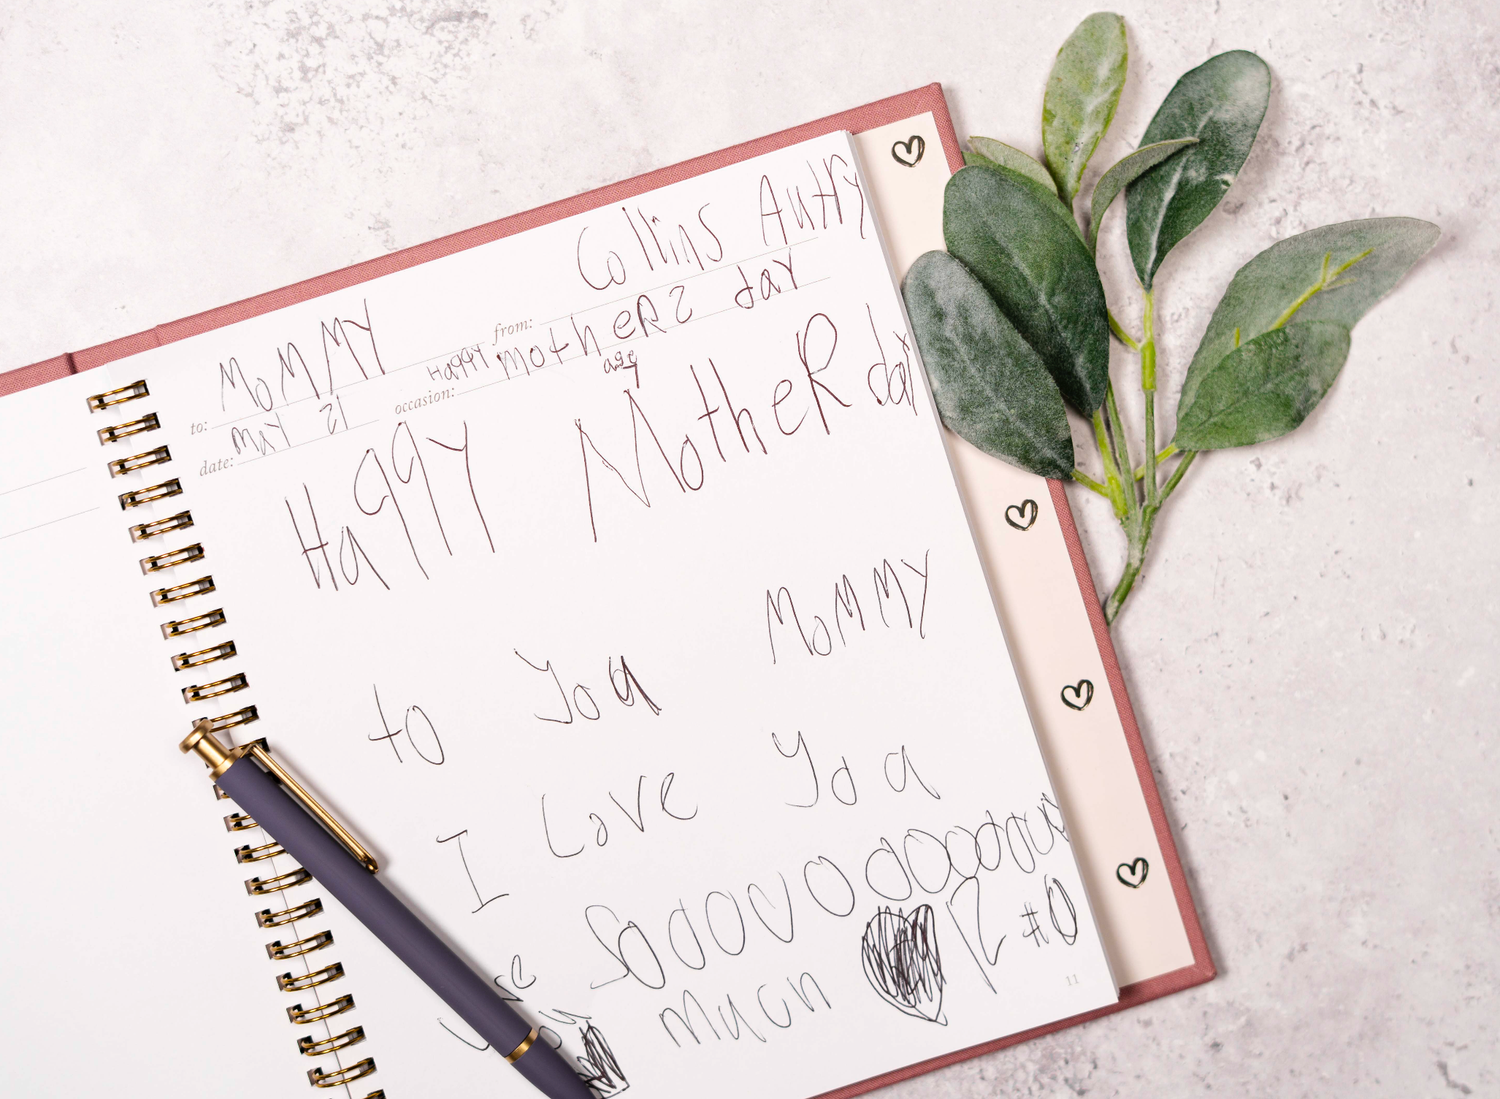 Collins Autry
to: MoMMY from:
date: MaY 21 occasion: Happy motheRs day
age
Happy MotheR day
to you MoMMY
I Love You
Sooooooooooooo
much #0
11